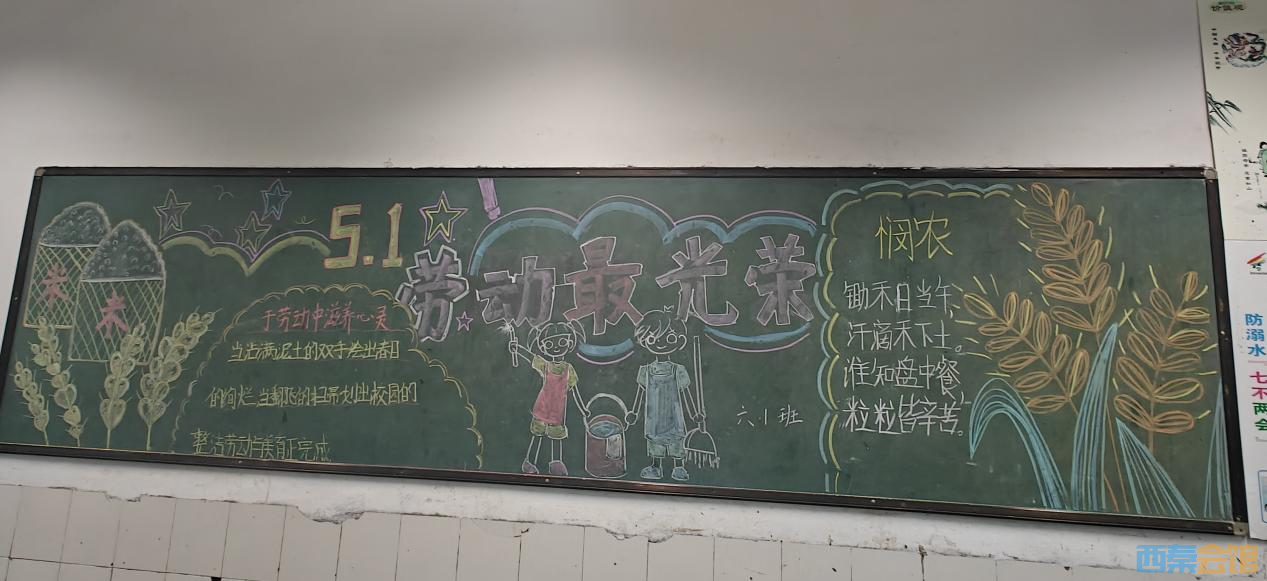 米
米
5.1
劳动最光荣
于劳动中滋养心灵
当沾满泥土的双手绘出春日
的绚烂当翻飞的扫帚划出校园的
整洁劳动与美育正完成
六小班
悯农
锄禾日当午，
汗滴禾下土。
谁知盘中餐，
粒粒皆辛苦。
价值观
防溺水
七不两会
西秦会馆